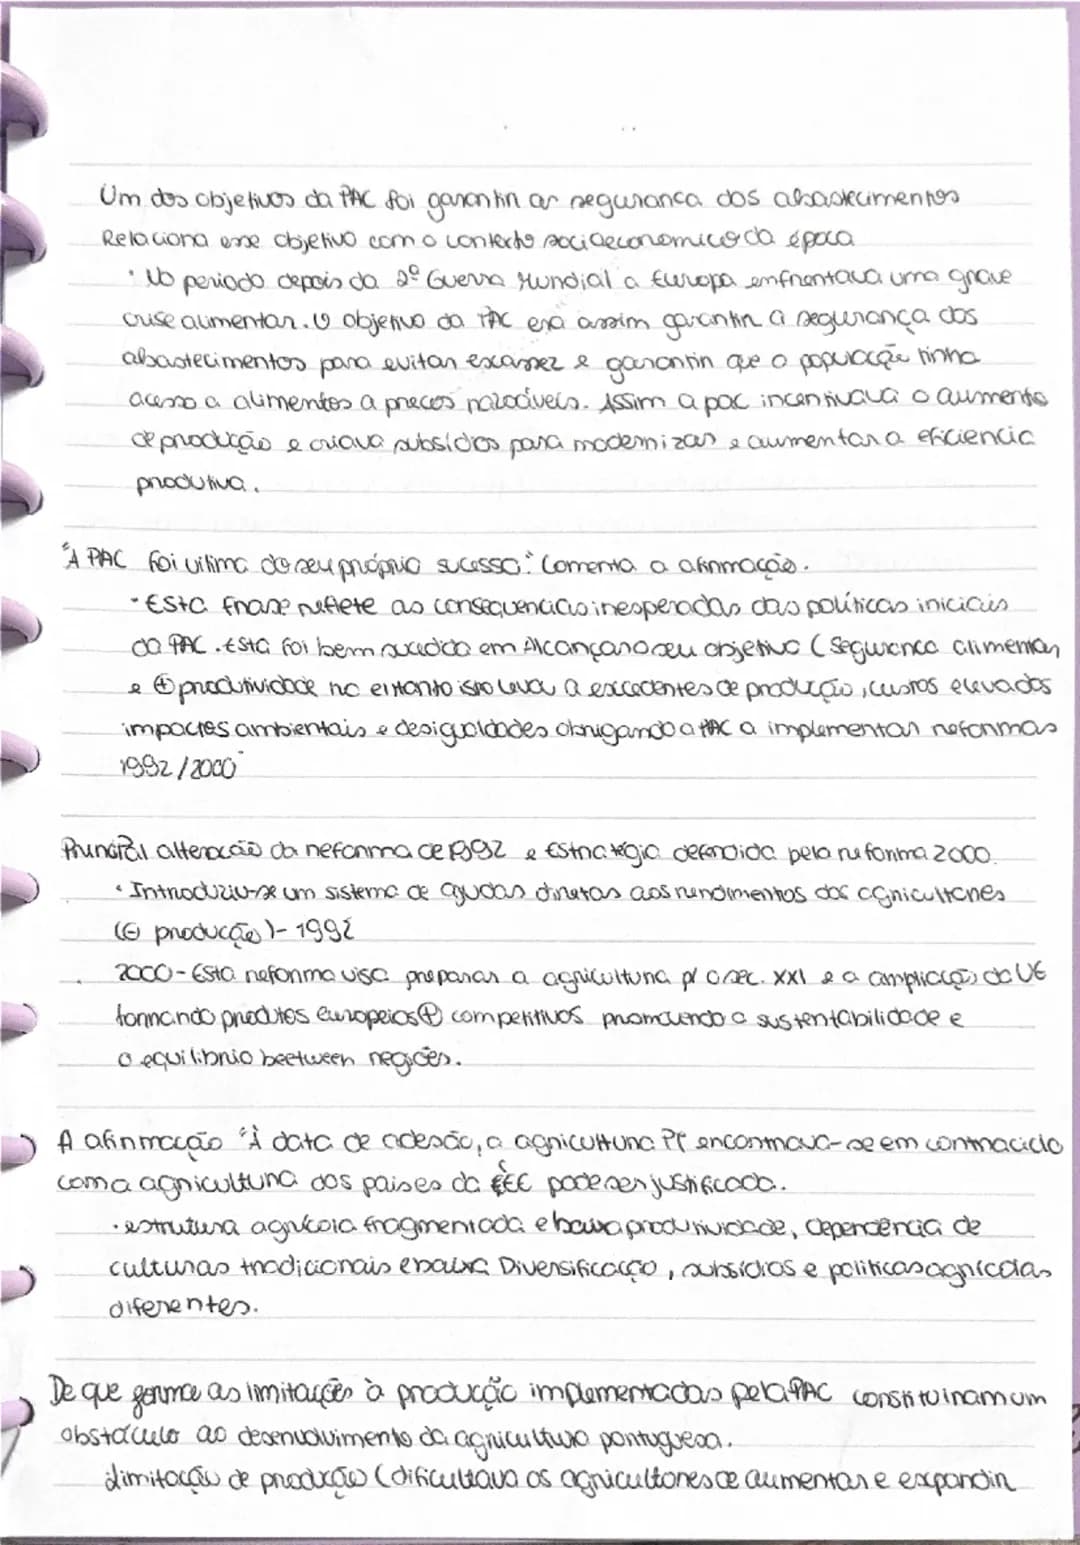 Um dos objetivos da PAC foi garantir as seguranca dos abastecimentos
Relaciona esse objetivo com o contexto socioeconomico da época
· No periodo depois da 2º Guerra Mundial a Europa enfrentava uma grave
crise alimentar. O objetivo da PAC era assim garantir a segurança dos
abastecimentos para evitar escassez e garantir que a população tinha
acesso a alimentos a precos razoáveis. Assim a pac incentivava o aumento
de produção e criava subsídios para modernizar e aumentar a eficiencia
produtiva.
"A PAC foi vitima do seu próprio sucesso." Comenta a afirmação.
· Esta frase reflete as consequencias inesperadas das políticas iniciais
da PAC. Esta foi bem sucedida em Alcançar o seu objetivo (Segurança alimentar
e ⊕ produtividade no entanto isto levou a excedentes de produção, custos elevados
impactes ambientais e desigualdades obrigando a PAC a implementar reformas
1992/2000
Principal alteração da reforma de 1992 e Estratégia defendida pela reforma 2000.
· Introduziu-se um sistema de ajudas diretas aos rendimentos dos agricultores
(⊖ produção) - 1992
2000 - Esta reforma visa preparar a agricultura p/ o sec. XXI e a ampliação da UE
tornando produtos europeios ⊕ competitivos promovendo a sustentabilidade e
o equilibrio beetween regiões.
A afirmação "À data de adesão, a agricultura PT encontrava-se em contraciclo
com a agricultura dos paises da CEE pode ser justificada.
· estrutura agrícola fragmentada e baixa produtividade, dependência de
culturas tradicionais e baixa Diversificação, subsidios e politicas agrícolas
diferentes.
De que forma as limitações à produção implementadas pela PAC constituiram um
obstáculo ao desenvolvimento da agricultura portuguesa.
limitação de produção (dificultava os agricultores de aumentar e expandir